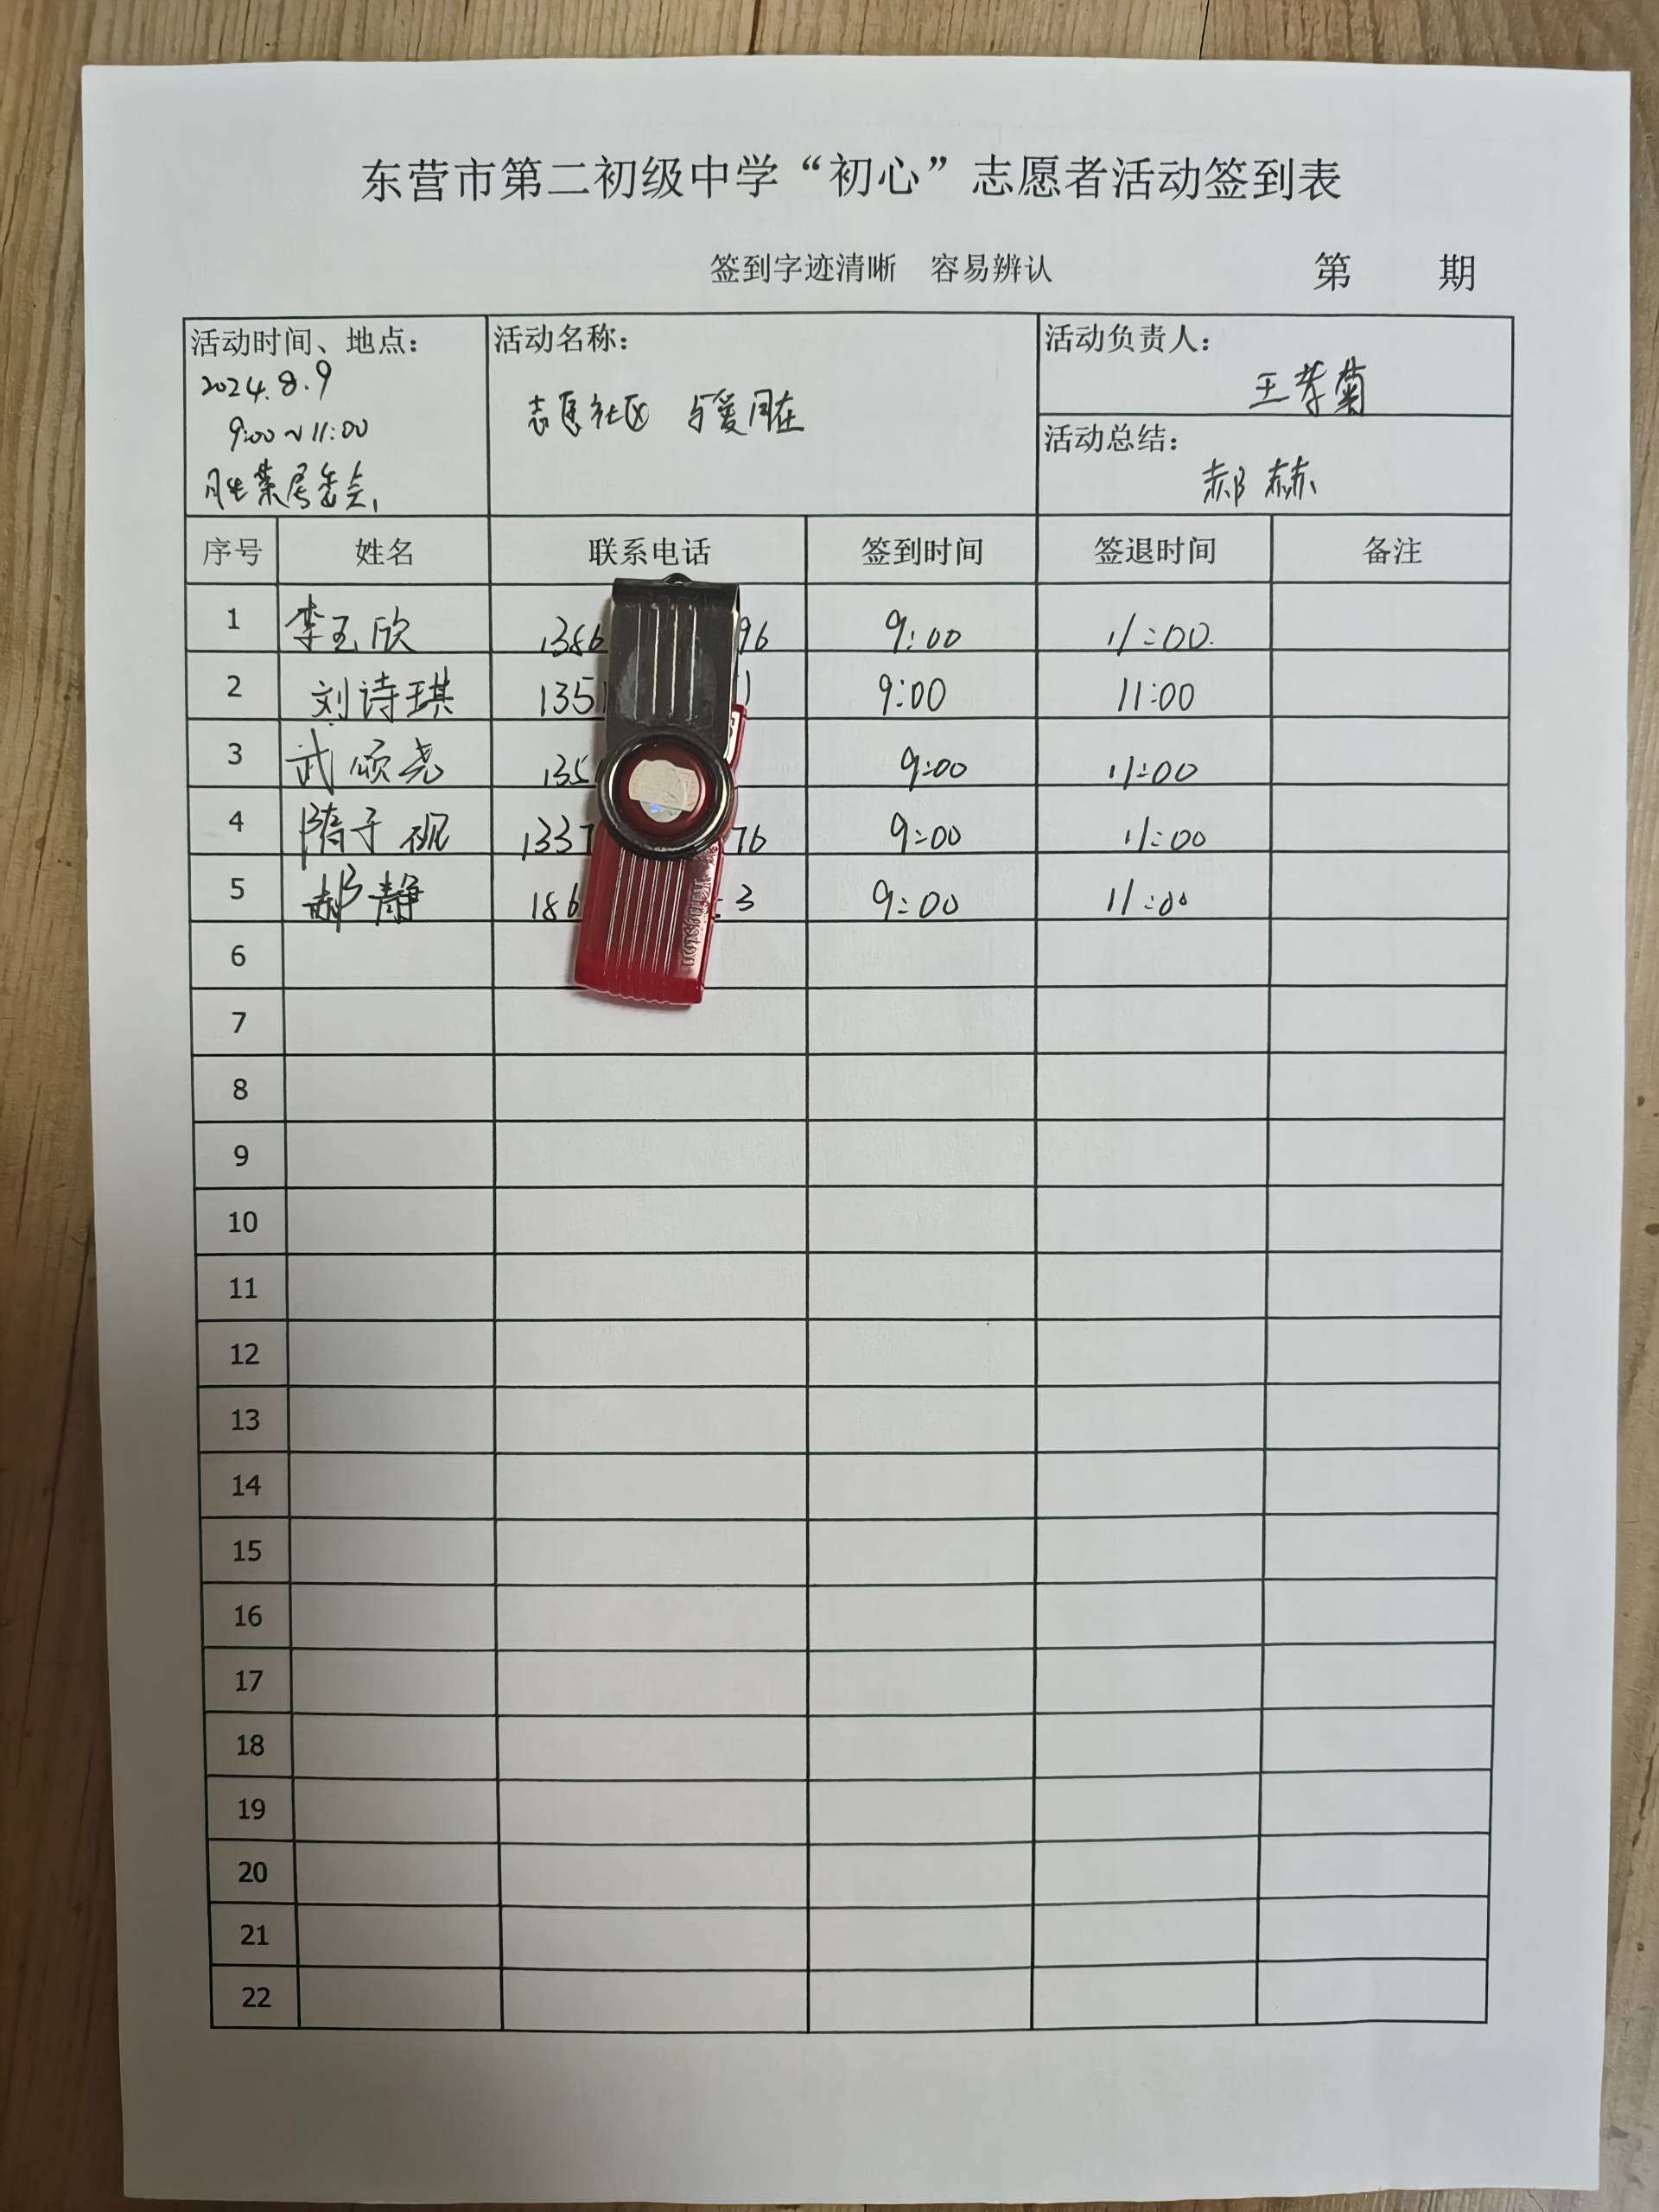 东营市第二初级中学“初心”志愿者活动签到表
签到字迹清晰 容易辨认 第 期
活动时间、地点：
2024.8.9
9:00~11:00
居委会
活动名称：
志愿社区 与爱同在
活动负责人：
王孝菊
活动总结：
郝赫
序号 姓名 联系电话 签到时间 签退时间 备注
1 李玉欣 1386 96 9:00 11:00
2 刘诗琪 1351 1 9:00 11:00
3 武颂尧 135 9:00 11:00
4 隋子砚 1337 76 9:00 11:00
5 郝静 186 3 9:00 11:00
6
7
8
9
10
11
12
13
14
15
16
17
18
19
20
21
22
Kingston